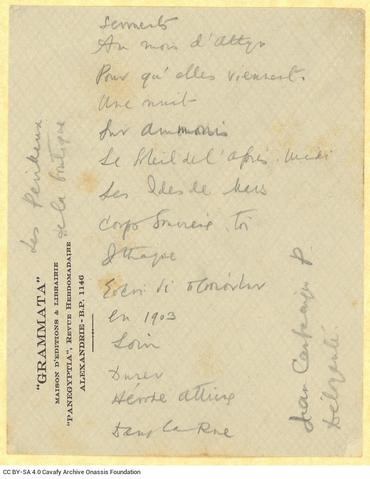 Serments
Au mois d'Athyr
Pour qu'elles viennent.
Une nuit
Sur Ammonis
Le Soleil de l'après-midi
Les Ides de Mars
Corps Souviens-toi
Ithaque
en 1903
Loin
Durer
Hérode Attique
Dans la Rue
Les
de la boutique
"GRAMMATA"
MAISON D'EDITIONS & LIBRAIRIE
"PANEGYPTIA", REVUE HEBDOMADAIRE
ALEXANDRIE - B.P. 1146
Jean
P.
CC BY-SA 4.0 Cavafy Archive Onassis Foundation